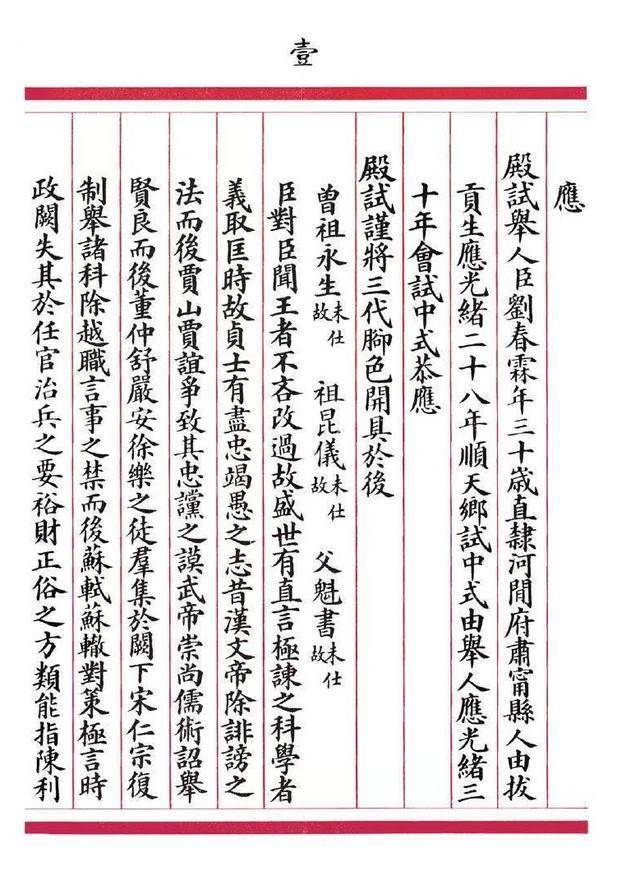 壹
應
殿試舉人臣劉春霖年三十歲直隸河閒府肅甯縣人由拔
貢生應光緒二十八年順天鄉試中式由舉人應光緒三
十年會試中式恭應
殿試謹將三代腳色開具於後
曾祖永生未仕故 祖昆儀未仕故 父魁書未仕故
臣對臣聞王者不吝改過故盛世有直言極諫之科學者
義取匡時故貞士有盡忠竭愚之志昔漢文帝除誹謗之
法而後賈山賈誼爭致其忠讜之謨武帝崇尚儒術詔舉
賢良而後董仲舒嚴安徐樂之徒羣集於闕下宋仁宗復
制舉諸科除越職言事之禁而後蘇軾蘇轍對策極言時
政闕失其於任官治兵之要裕財正俗之方類能指陳利